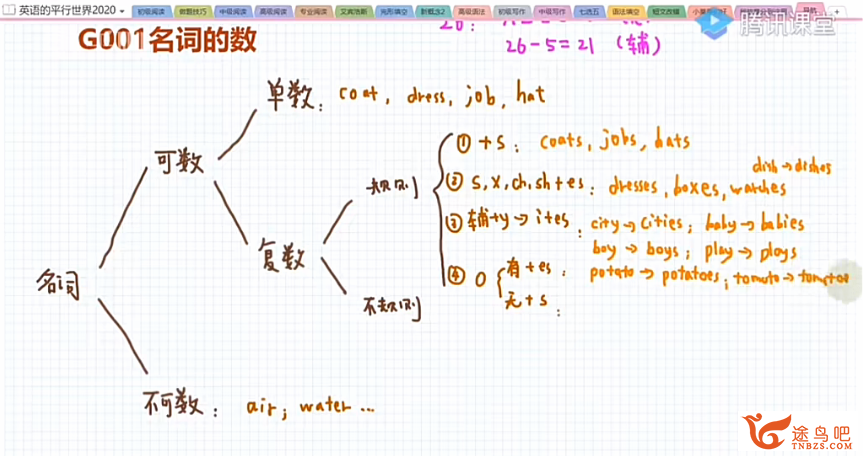 英语的平行世界2020
初级阅读 做题技巧 中级阅读 高级阅读 专业阅读 艾宾浩斯 完形填空 新概念2 高级语法 初级写作 中级写作 七选五 语法填空 短文改错
26:
26-5=21 (辅)
腾讯课堂
G001名词的数
单数: coat, dress, job, hat
可数
① +s: coats, jobs, hats
dish→dishes
规则
② s,x,ch,sh+es: dresses, boxes, watches
③ 辅+y→i+es: city→cities; baby→babies
boy→boys; play→plays
复数
名词
④ o 有+es: potato→potatoes; tomato→tomatoes
无+s:
不规则
不可数: air; water...
途鸟吧
TNBZS.COM